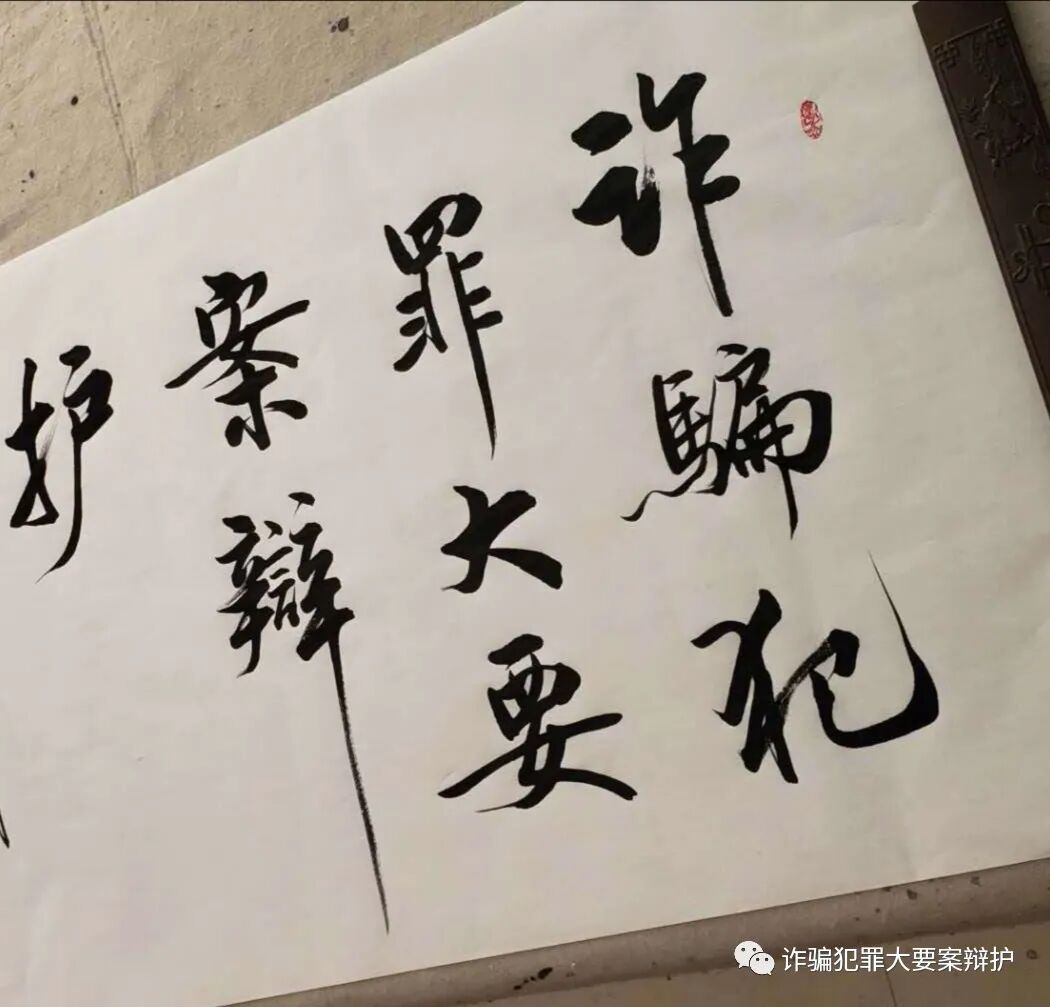 诈骗犯
罪大要
案辩
护
诈骗犯罪大要案辩护